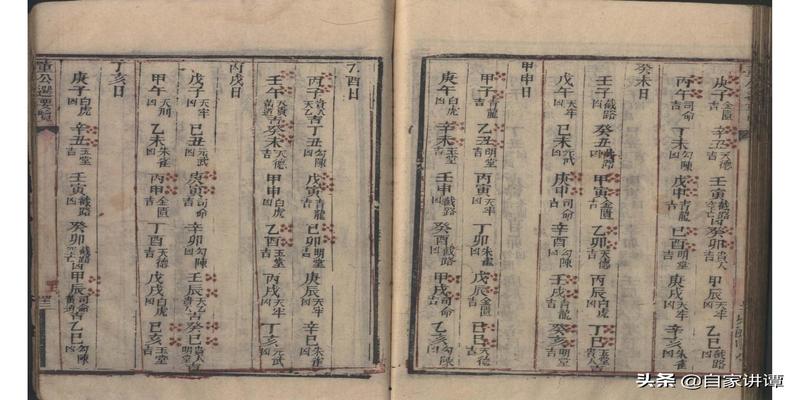 庚子金匱吉 辛丑天德吉 壬寅截路凶 癸卯貴人吉 甲辰天牢凶 乙巳截路凶
丙午司命吉 丁未勾陳凶 戊申青龍吉 己酉明堂吉 庚戌天牢凶 辛亥朱雀凶
癸未日
壬子截路凶 癸丑截路凶 甲寅金匱吉 乙卯天德吉 丙辰白虎凶 丁巳玉堂貴人吉
戊午天牢凶 己未元武凶 庚申司命吉 辛酉勾陳凶 壬戌青龍吉 癸亥明堂吉
甲申日
甲子青龍吉 乙丑明堂吉 丙寅天牢凶 丁卯朱雀凶 戊辰金匱吉 己巳天德吉
庚午白虎凶 辛未玉堂吉 壬申截路凶 癸酉截路凶 甲戌司命吉 乙亥勾陳凶
乙酉日
丙子貴人天乙吉 丁丑勾陳凶 戊寅青龍吉 己卯明堂吉 庚辰天牢凶 辛巳朱雀凶
壬午天貴黃道吉 癸未天德吉 甲申白虎凶 乙酉玉堂吉 丙戌天牢凶 丁亥元武凶
丙戌日
戊子天牢凶 己丑元武凶 庚寅司命吉 辛卯勾陳凶 壬辰天乙貴人吉 癸巳貴人明堂吉
甲午天刑凶 乙未朱雀凶 丙申金匱吉 丁酉天德吉 戊戌白虎凶 己亥玉堂吉
丁亥日
庚子白虎凶 辛丑玉堂吉 壬寅截路凶 癸卯截路空亡凶 甲辰司命黃道吉 乙巳勾陳凶
董公選要覽
头条 @自家讲谭